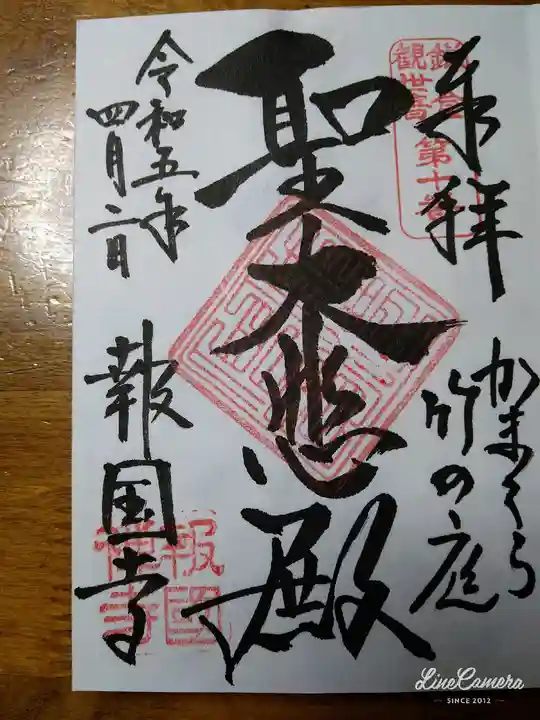 来拝
かまくら
竹の庭
聖大悲殿
令和五年
四月二日
報国寺
観世音
第十番
報國
禅寺
LineCamera
SINCE 2012